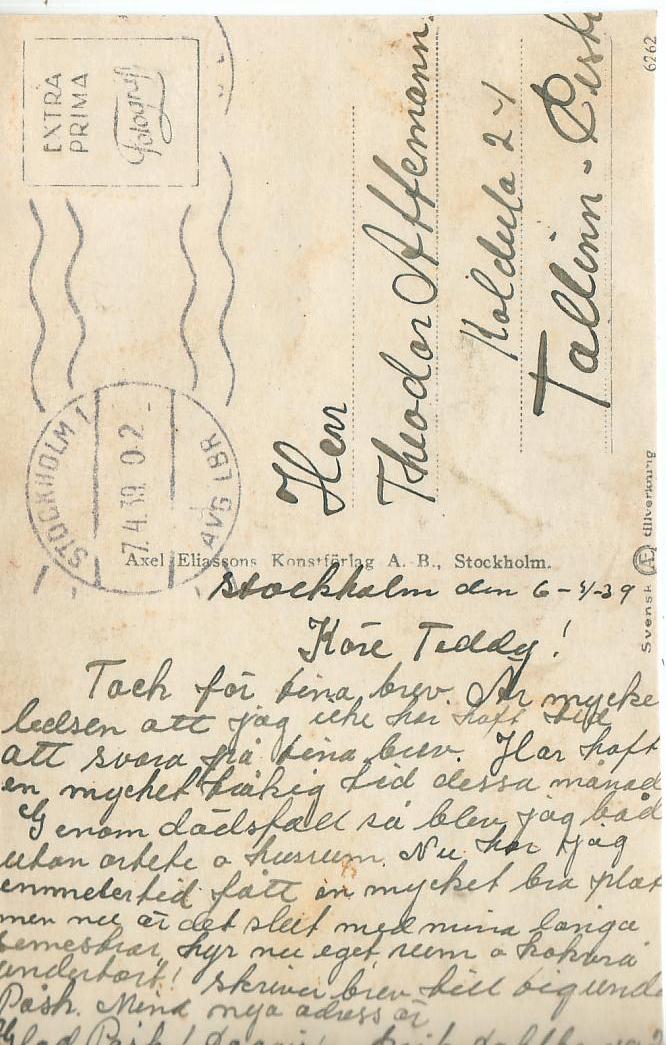 EXTRA
PRIMA
Fotografi
STOCKHOLM 1
-7.4.39. 0-2
AVG LBR
Herr
Theodor Affemann.
Koldula 2-1
Tallinn -
6262
Svensk Æ tillverkning
Axel Eliassons Konstförlag A.-B., Stockholm.
Stockholm den 6-4-39
Käre Teddy!
Tack för dina brev. Är mycke
ledsen att jag icke har haft tid
att svara på dina brev. Har haft
en mycket tråkig tid dessa månad
Genom dödsfall så blev jag båd
utan arbete o husrum. Nu har jag
emmelertid fått en mycket bra plat
men nu är det slut med mina långa
semestrar, hyr nu eget rum o kokvrå
underbart! Skriver brev till dig unde
Påsk. Mina nya adress är
Glad Påsk!